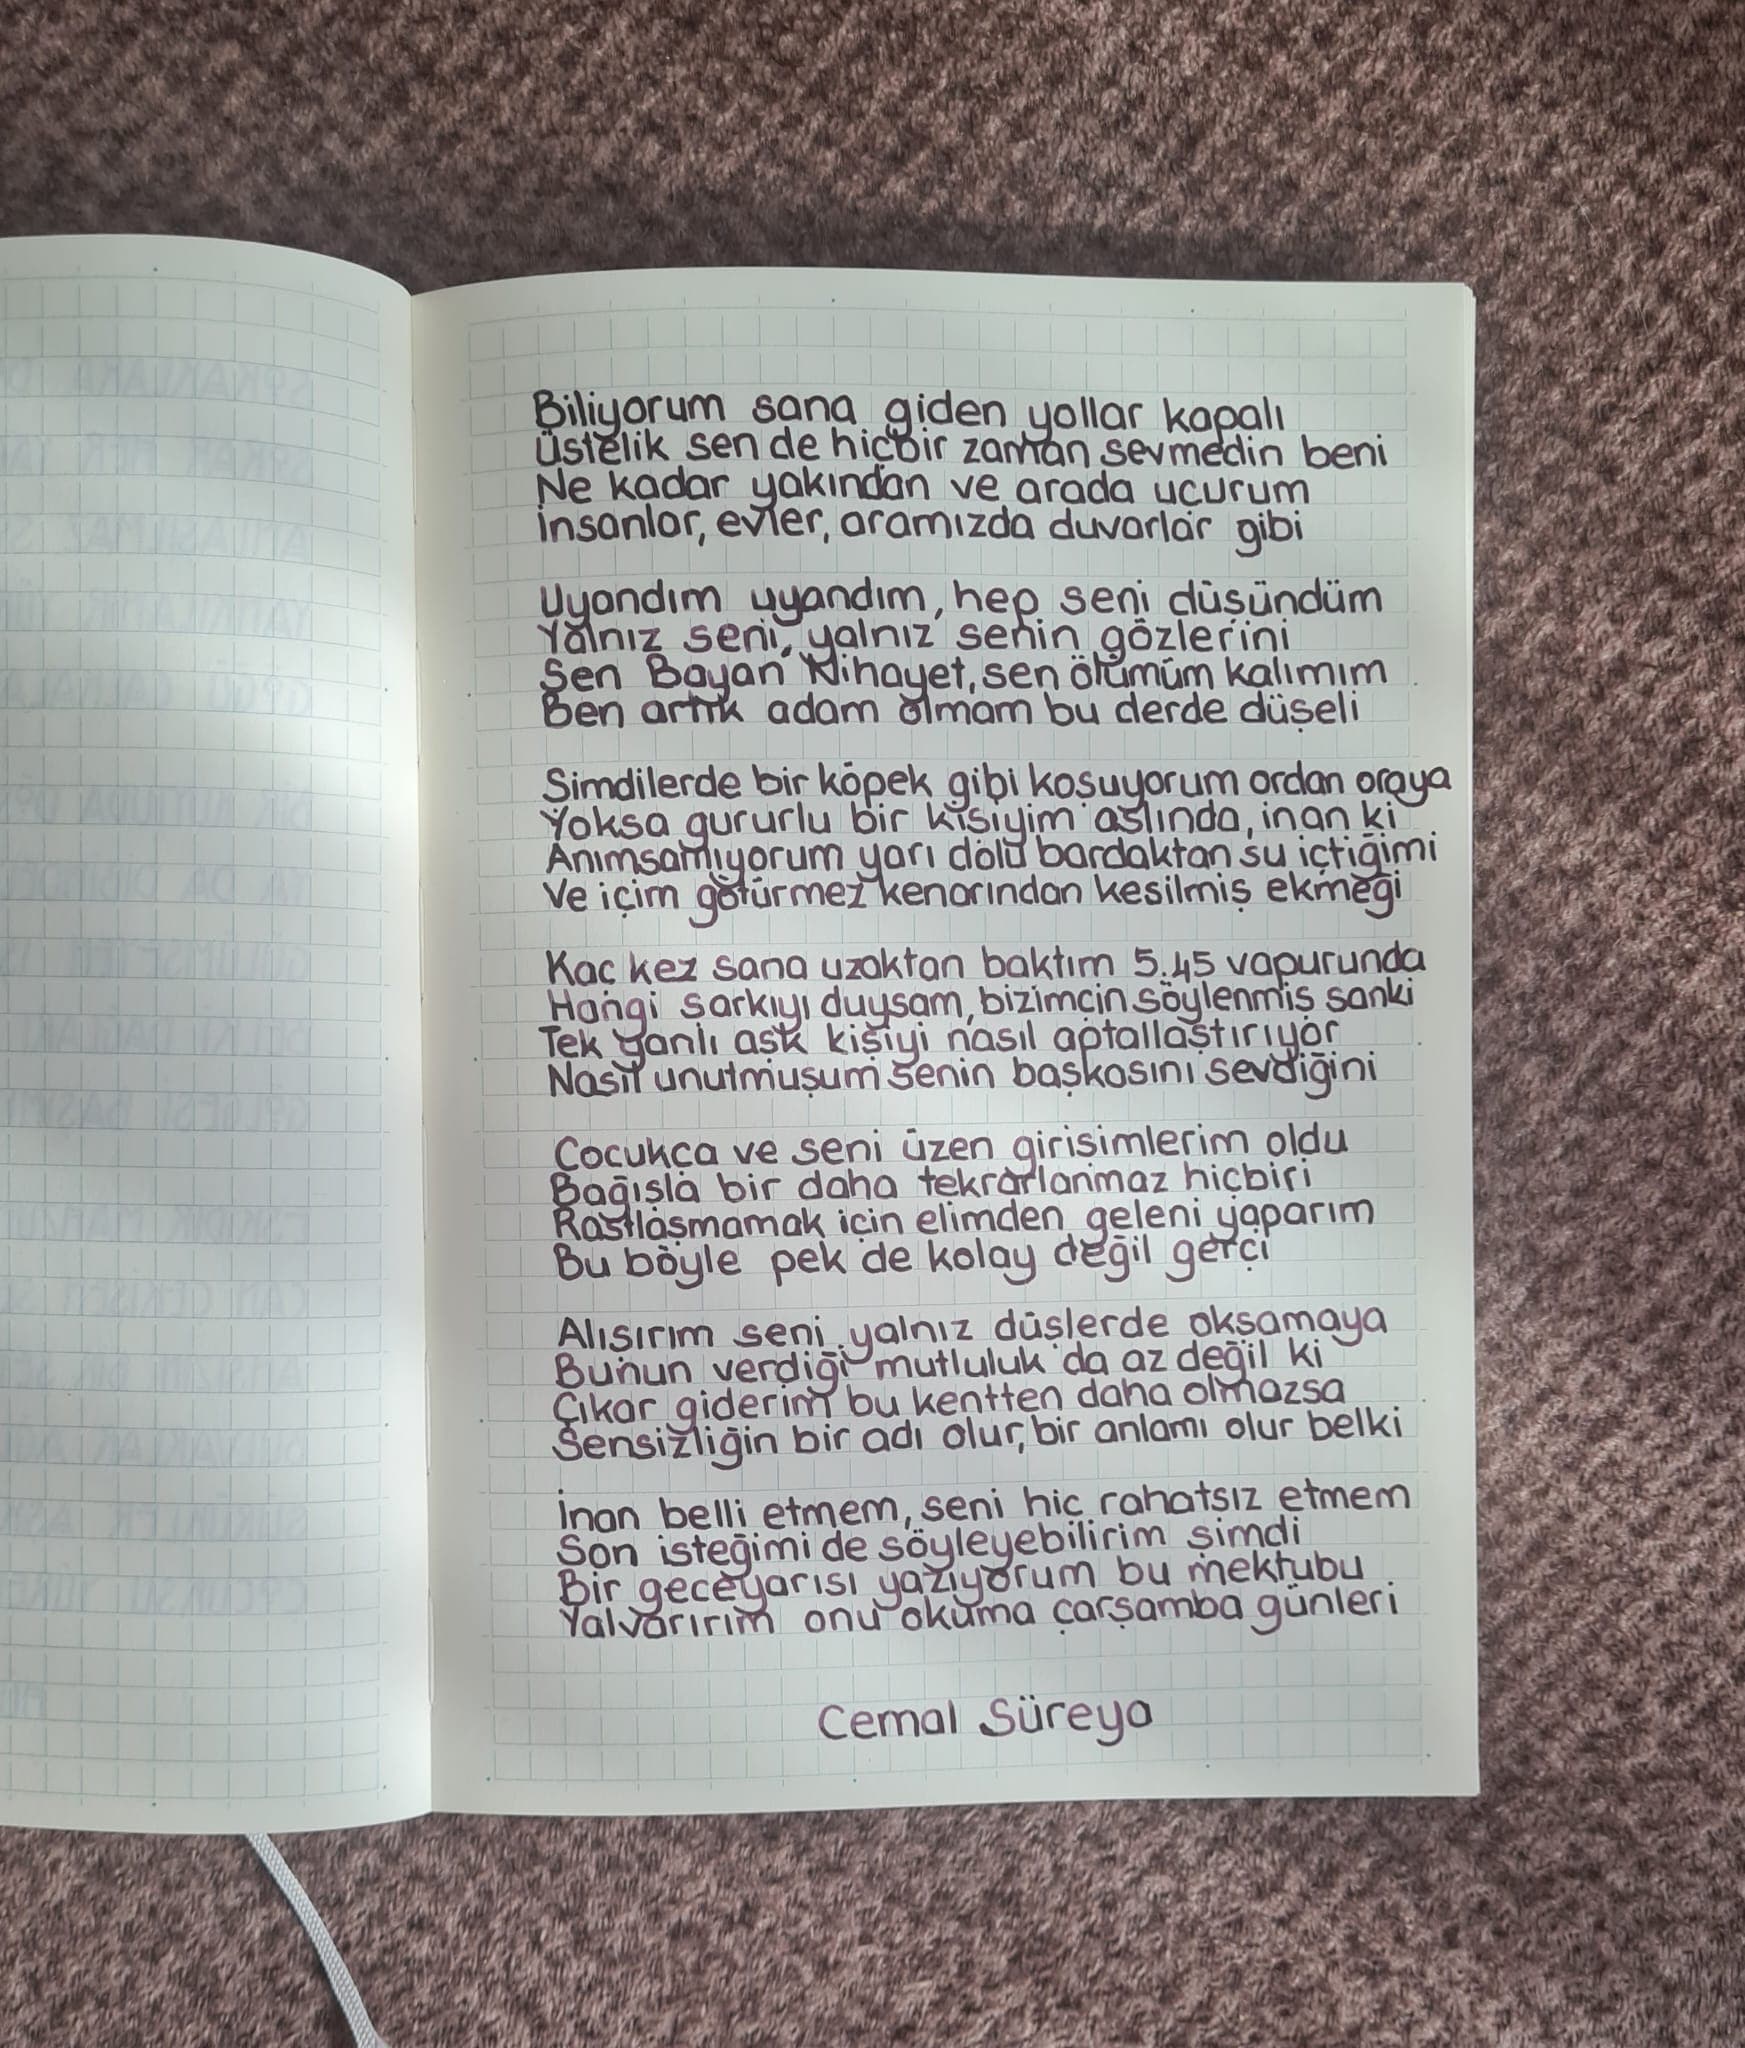 Biliyorum sana giden yollar kapalı
Üstelik sen de hiçbir zaman sevmedin beni
Ne kadar yakından ve arada uçurum
İnsanlar, evler, aramızda duvarlar gibi
Uyandım uyandım, hep seni düşündüm
Yalnız seni, yalnız senin gözlerini
Sen Bayan Nihayet, sen ölümüm kalımım
Ben artık adam olmam bu derde düşeli
Şimdilerde bir köpek gibi koşuyorum ordan oraya
Yoksa gururlu bir kişiyim aslında, inan ki
Anımsamıyorum yarı dolu bardaktan su içtiğimi
Ve içim götürmez kenarından kesilmiş ekmeği
Kaç kez sana uzaktan baktım 5.45 vapurunda
Hangi şarkıyı duysam, bizimçin söylenmiş sanki
Tek yanlı aşk kişiyi nasıl aptallaştırıyor
Nasıl unutmuşum senin başkasını sevdiğini
Çocukça ve seni üzen girişimlerim oldu
Bağışla bir daha tekrarlanmaz hiçbiri
Rastlaşmamak için elimden geleni yaparım
Bu böyle pek de kolay değil gerçi
Alışırım seni yalnız düşlerde okşamaya
Bunun verdiği mutluluk da az değil ki
Çıkar giderim bu kentten daha olmazsa
Sensizliğin bir adı olur, bir anlamı olur belki
İnan belli etmem, seni hiç rahatsız etmem
Son isteğimi de söyleyebilirim şimdi
Bir geceyarısı yazıyorum bu mektubu
Yalvarırım onu okuma çarşamba günleri
Cemal Süreya